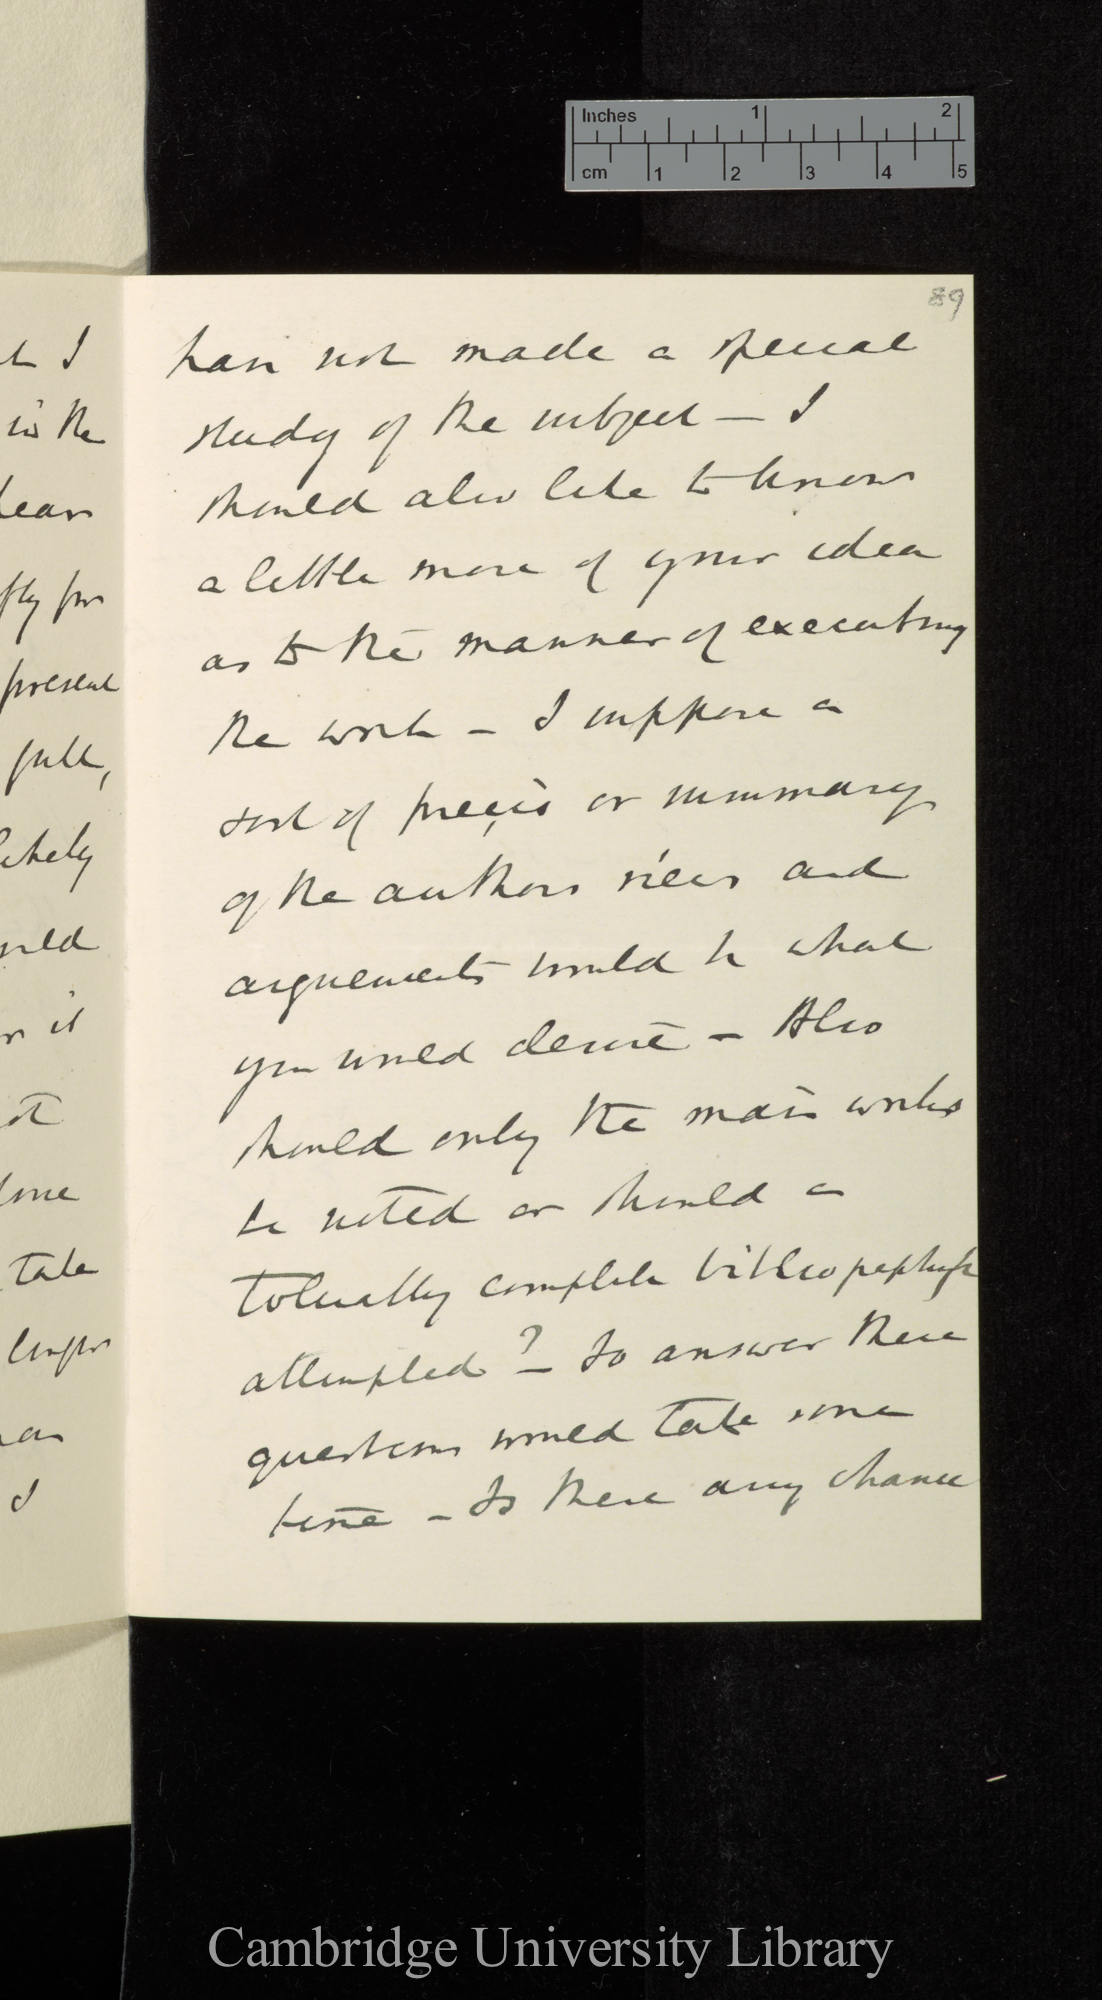 Inches 1 2
cm 1 2 3 4 5
89
have not made a special
study of the subject — I
should also like to know
a little more of your idea
as to the manner of executing
the work — I suppose a
sort of preçis or summary
of the authors views and
arguements would be what
you would desire — Also
should only the main works
be noted or should a
tolerably complete
attempted? — To answer these
questions would take some
time — Is there any chance
t I
in the
present
full,
likely
it
take
I
Cambridge University Library